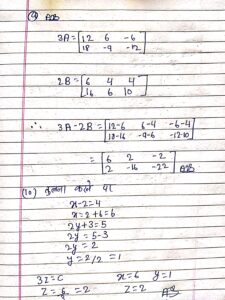 (9) Ans
3A = [12 6 -6
18 -9 -12]
2B = [6 4 4
16 6 10]
∴ 3A-2B = [12-6 6-4 -6-4
18-16 -9-6 -12-10]
= [6 2 -2
2 -16 -22] Ans
(10) तुलना करने पर
x-2=4
x=2+6=6
2y+3=5
2y=5-3
2y=2
y=2/2=1
3z=6 x=6 y=1
z=6 =2 z=2 Ans